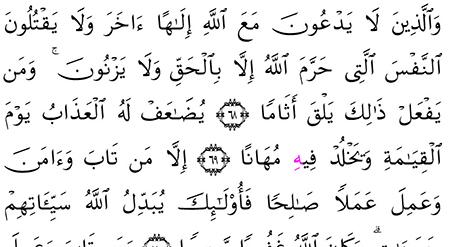 وَٱلَّذِينَ لَا يَدْعُونَ مَعَ ٱللَّهِ إِلَـٰهًا ءَاخَرَ وَلَا يَقْتُلُونَ
ٱلنَّفْسَ ٱلَّتِى حَرَّمَ ٱللَّهُ إِلَّا بِٱلْحَقِّ وَلَا يَزْنُونَ ۚ وَمَن
يَفْعَلْ ذَٰلِكَ يَلْقَ أَثَامًا ﴿٦٨﴾ يُضَـٰعَفْ لَهُ ٱلْعَذَابُ يَوْمَ
ٱلْقِيَـٰمَةِ وَيَخْلُدْ فِيهِۦ مُهَانًا ﴿٦٩﴾ إِلَّا مَن تَابَ وَءَامَنَ
وَعَمِلَ عَمَلًا صَـٰلِحًا فَأُو۟لَـٰٓئِكَ يُبَدِّلُ ٱللَّهُ سَيِّـَٔاتِهِمْ